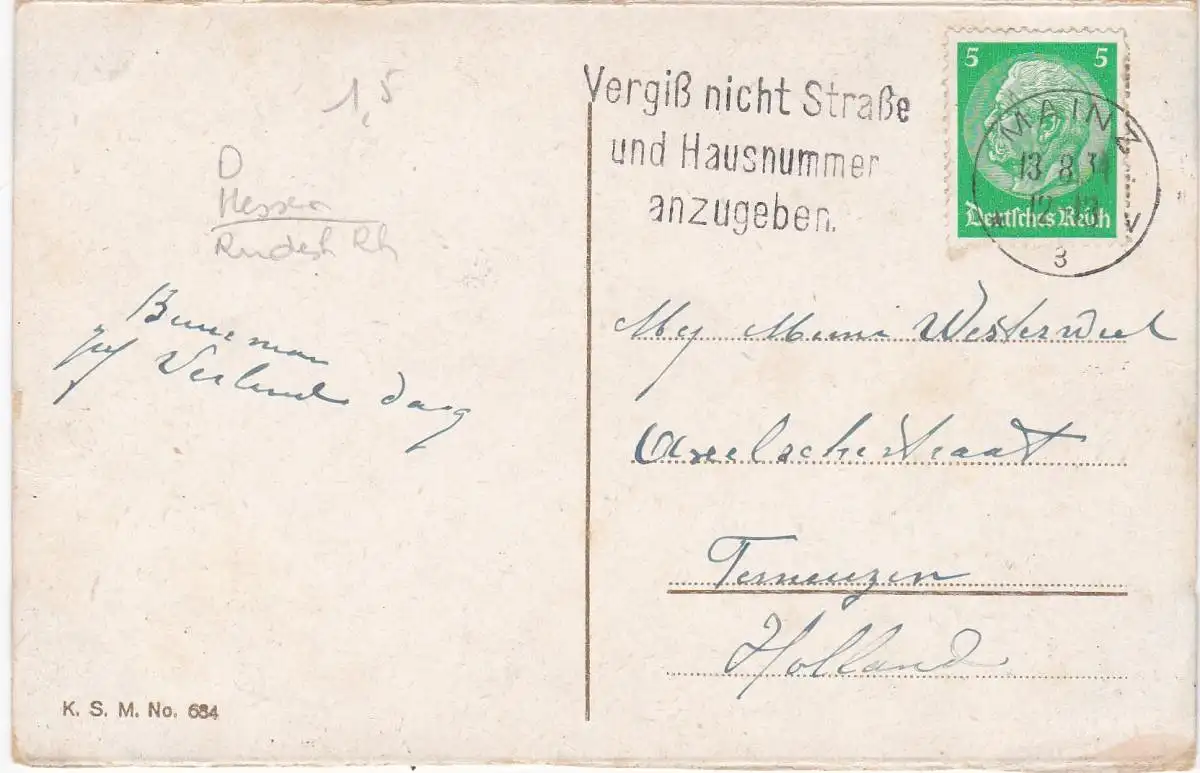 1,5
D
Hessen
Rudesh Rh
Verlund dag
K. S. M. No. 684
Vergiß nicht Straße
und Hausnummer
anzugeben.
5 5
Deutsches Reich
MAINZ
13.8.34
12-13
3
Westerweel
Axelschestraat
Terneuzen
Holland